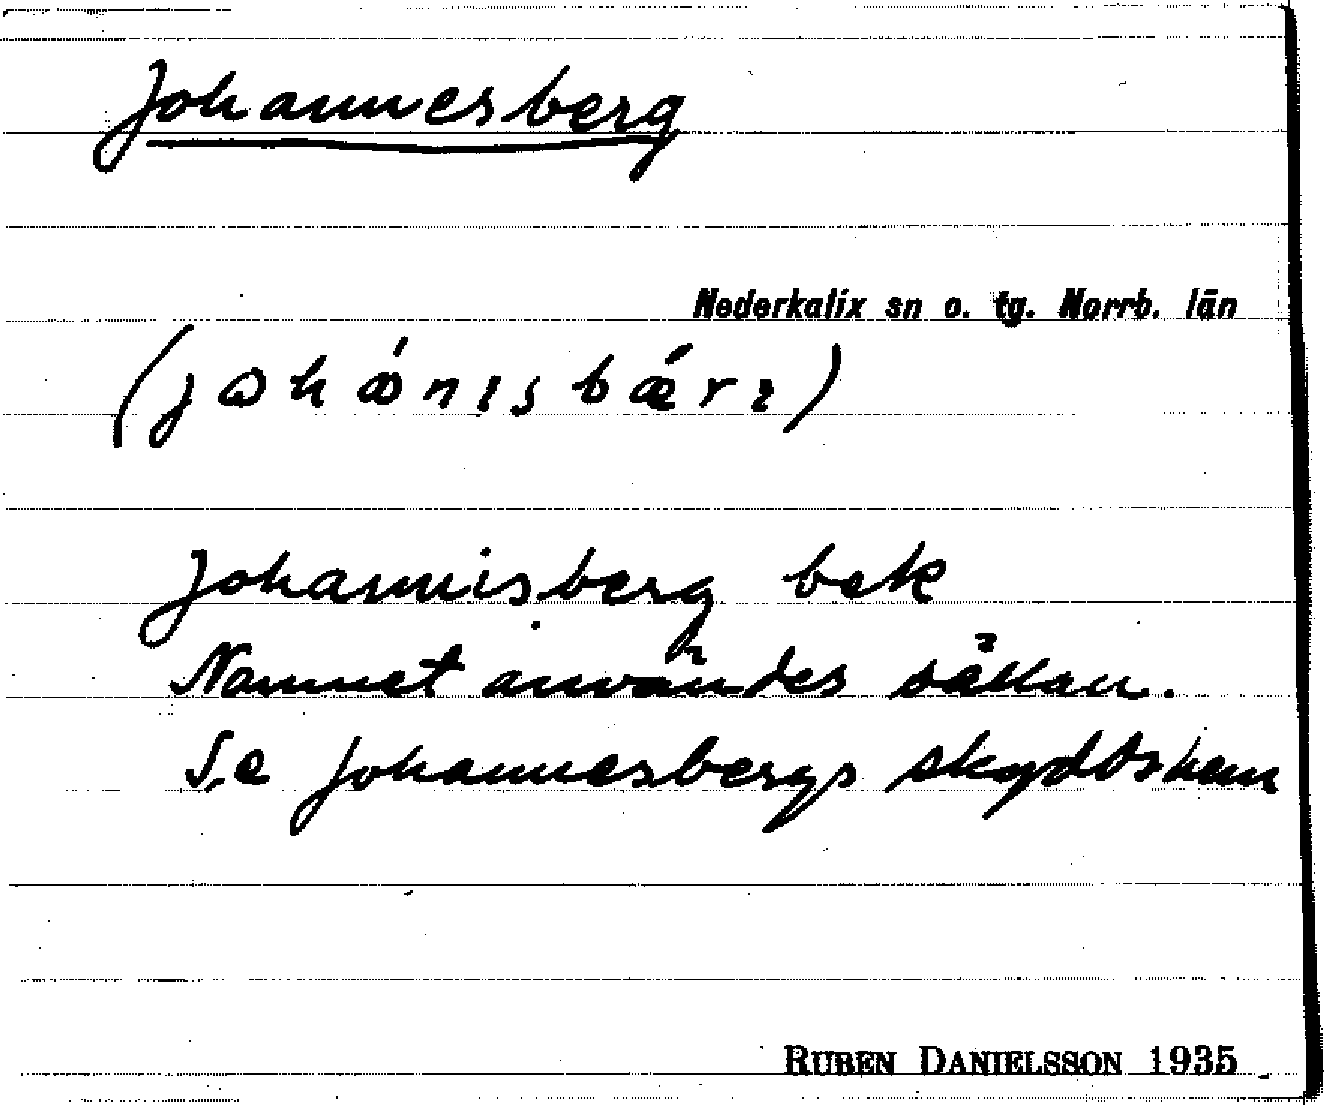 Johannesberg
Nederkalix sn o. tg. Norrb. län
Johannisberg bek
Namnet användes sällan.
Se Johannesbergs skyddshem
RUBEN DANIELSSON 1935